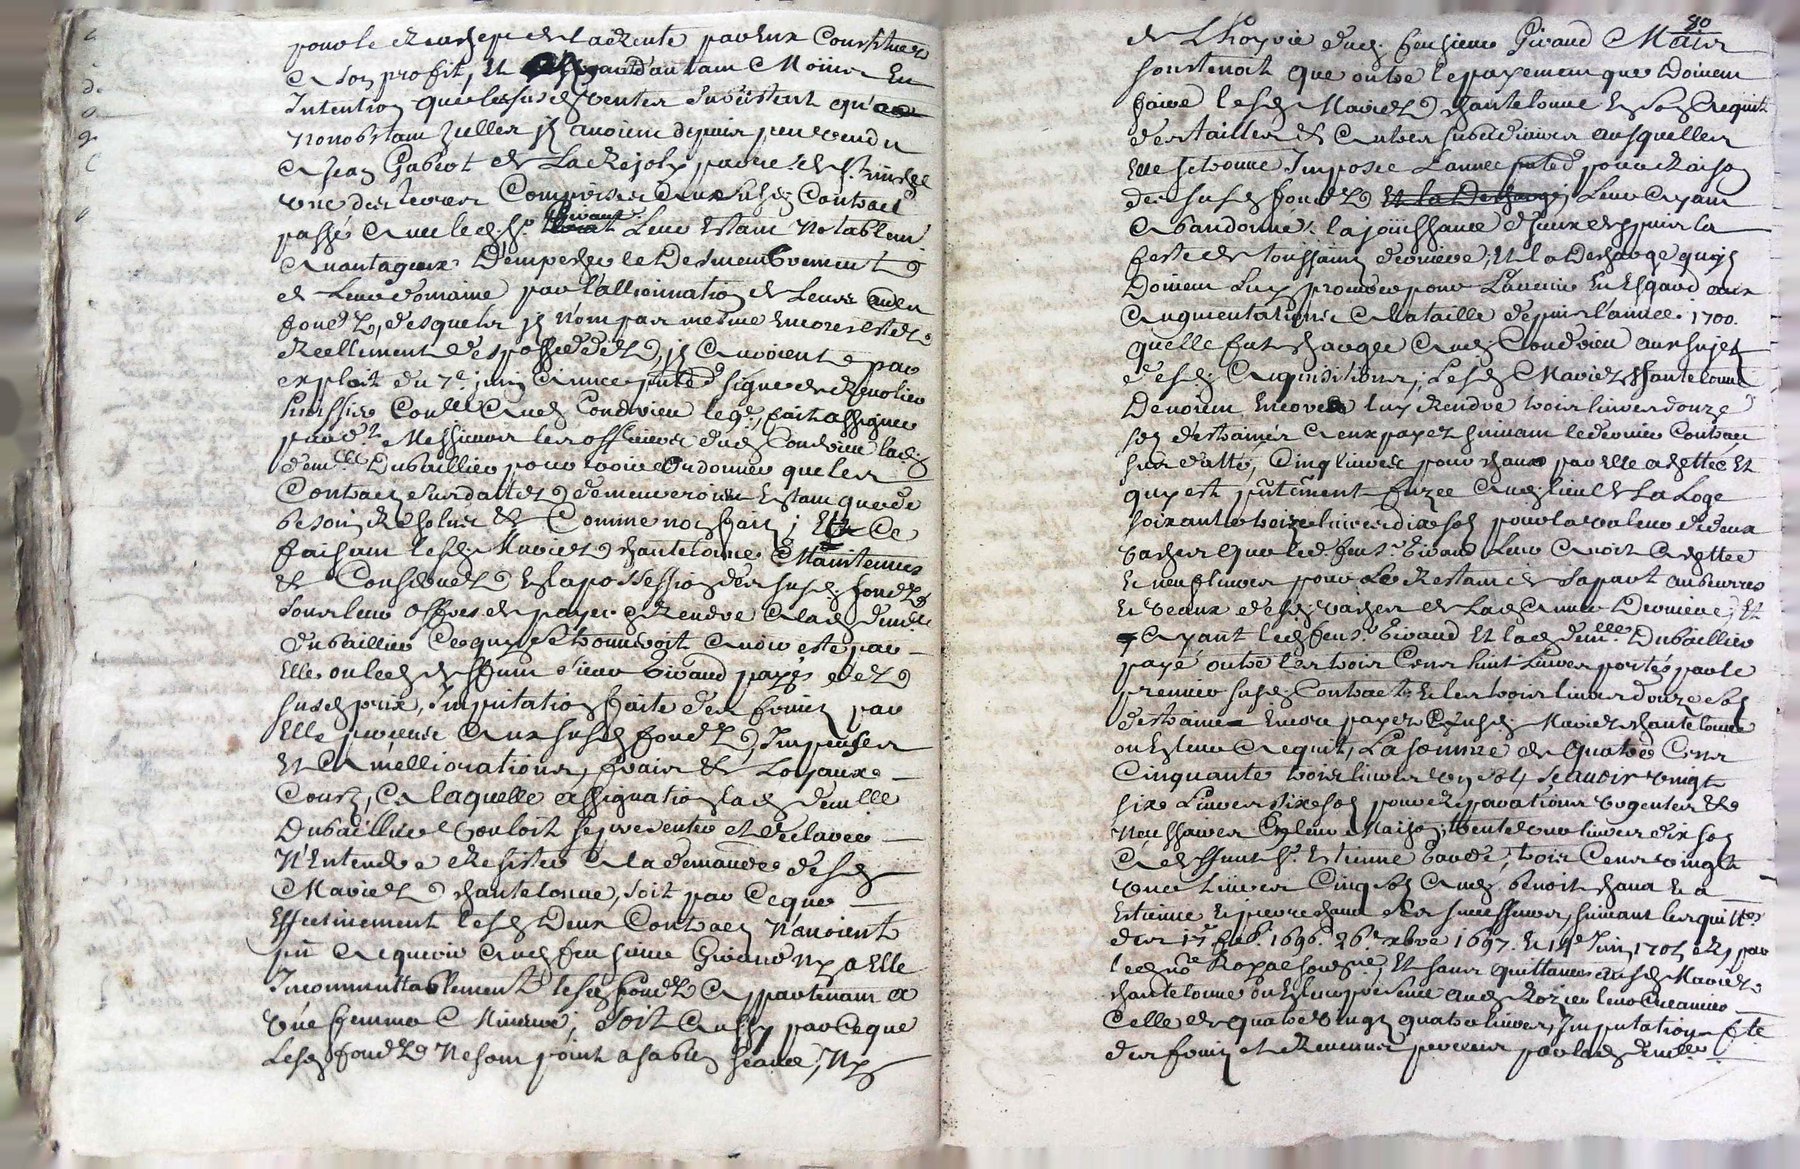 pour le rachept de la rente par eux constituée
a son profit, et d'autant moins en
Intention que les susd ventes subsistent qu'
nonobstant Icelles ils avoient depuis peu vendu
a Jean Gabiot de La Rejoly parroisse de St
une des terres comprises aux susd contract
passé avec led Sr Giraud leur estant notablem
avantageux d'empescher le desmembrement
de leur domaine par l'allienation de leurs
fonds, desquels ils n'ont pas mesme encores estés
reellement despossedés, ils avoient par
exploit du 7e juin année presente signé
huissier aud Condrieu le 9e, fait assigner
pard Messieurs les officiers dud Condrieu lad
demlle Dubaillier pour voir ordonner que les
contracts surdattés demeureroient estant que de
besoin resolus et comme non faits ; et ce
faisant lesd Mariés Chantelonne Maintenus
et conservés en la possession des susd fonds
sous leur offres de payer et rendre a lad demlle
Dubaillier ce qui se trouveroit avoir esté par
Elle ou led deffunt sieur Giraud payés des
susd prix, Imputation faite des fruits par
Elle perceus aux susd fonds, Impenses
et améliorations, frais et Loyaux
cousts, a laquelle assignation lad demlle
Dubaillier vouloit se presenter et declarer
N'Entendre resister a la demande desd
Mariés Chantelonne, soit par ce que
Effectivement lesd Deux contracts n'avoient
pû acquerir aud feu sieur Giraud ny a Elle
Incommuttablement lesd fonds appartenant a
une femme Mineure ; soit aussy par ce que
Lesd fonds ne sont point a sa bien seance, ny
80
de L'hoyrie dud feu sieur Giraud Mais
soustenoit que outre le payement que doivent
faire lesd Mariés Chantelonne en son acquit
des tailles et autres subsides ausquelles
Elle se trouve Imposée l'année pnte pour Raison
des susd fonds Leur ayant
abandonné la jouissance d'Iceux depuis la
feste de toussaint derniere, et la descharge qu'ils
Doivent Luy procurer pour L'avenir en Esgard aux
augmentations a la taille depuis l'année 1700.
quelle fut chargée aud Condrieu au sujet
desd acquisitions ; Lesd Mariés Chantelonne
Devoient encores luy rendre trois livres douze
sols d'estaines a eux payés suivant le dernier contract
surdatté, cinq livres pour chaux par elle achettée et
qui est presentement fuzée aud lieu de La Loge
soixante treize livres dix sols pour la valeur de deux
vaches que led feu Sr Giraud leur avoit achettée
et neuf livres pour Le Restant de sa part au beurres
et veaux desd vaches de Lad année Derniere ; Et
ayant led feu Sr Giraud et lad demlle Dubaillier
payé outre les trois cens huit livres portés par le
premier susd contract et les trois livres douze sols
d'estaines encore payés ausd Mariés Chantelonne
ou en leur acquit, La somme de quatre cens
Cinquante trois livres un sol, scavoir vingt
six Livres dix sols pour reparations urgentes et
Necessaires en leur Maison, trente livres dix sols
a deffunt Sr Estienne, trois cens vingt
une Livres cinq sols aud benoit chana et a
Estienne et pierre chana ses successeurs, suivant les quittes
des 17e feb. 1696. 26e xbre 1697. et 19e Juin 1705 par
led nore Royal soubsigné, et sans quittance ausd Mariés
Chantelonne ou en leur presence aud Rozier leur creancier
celle de quatre vingt quatre livres, Imputation fte
des fruits et revenus perceus par lad demlle